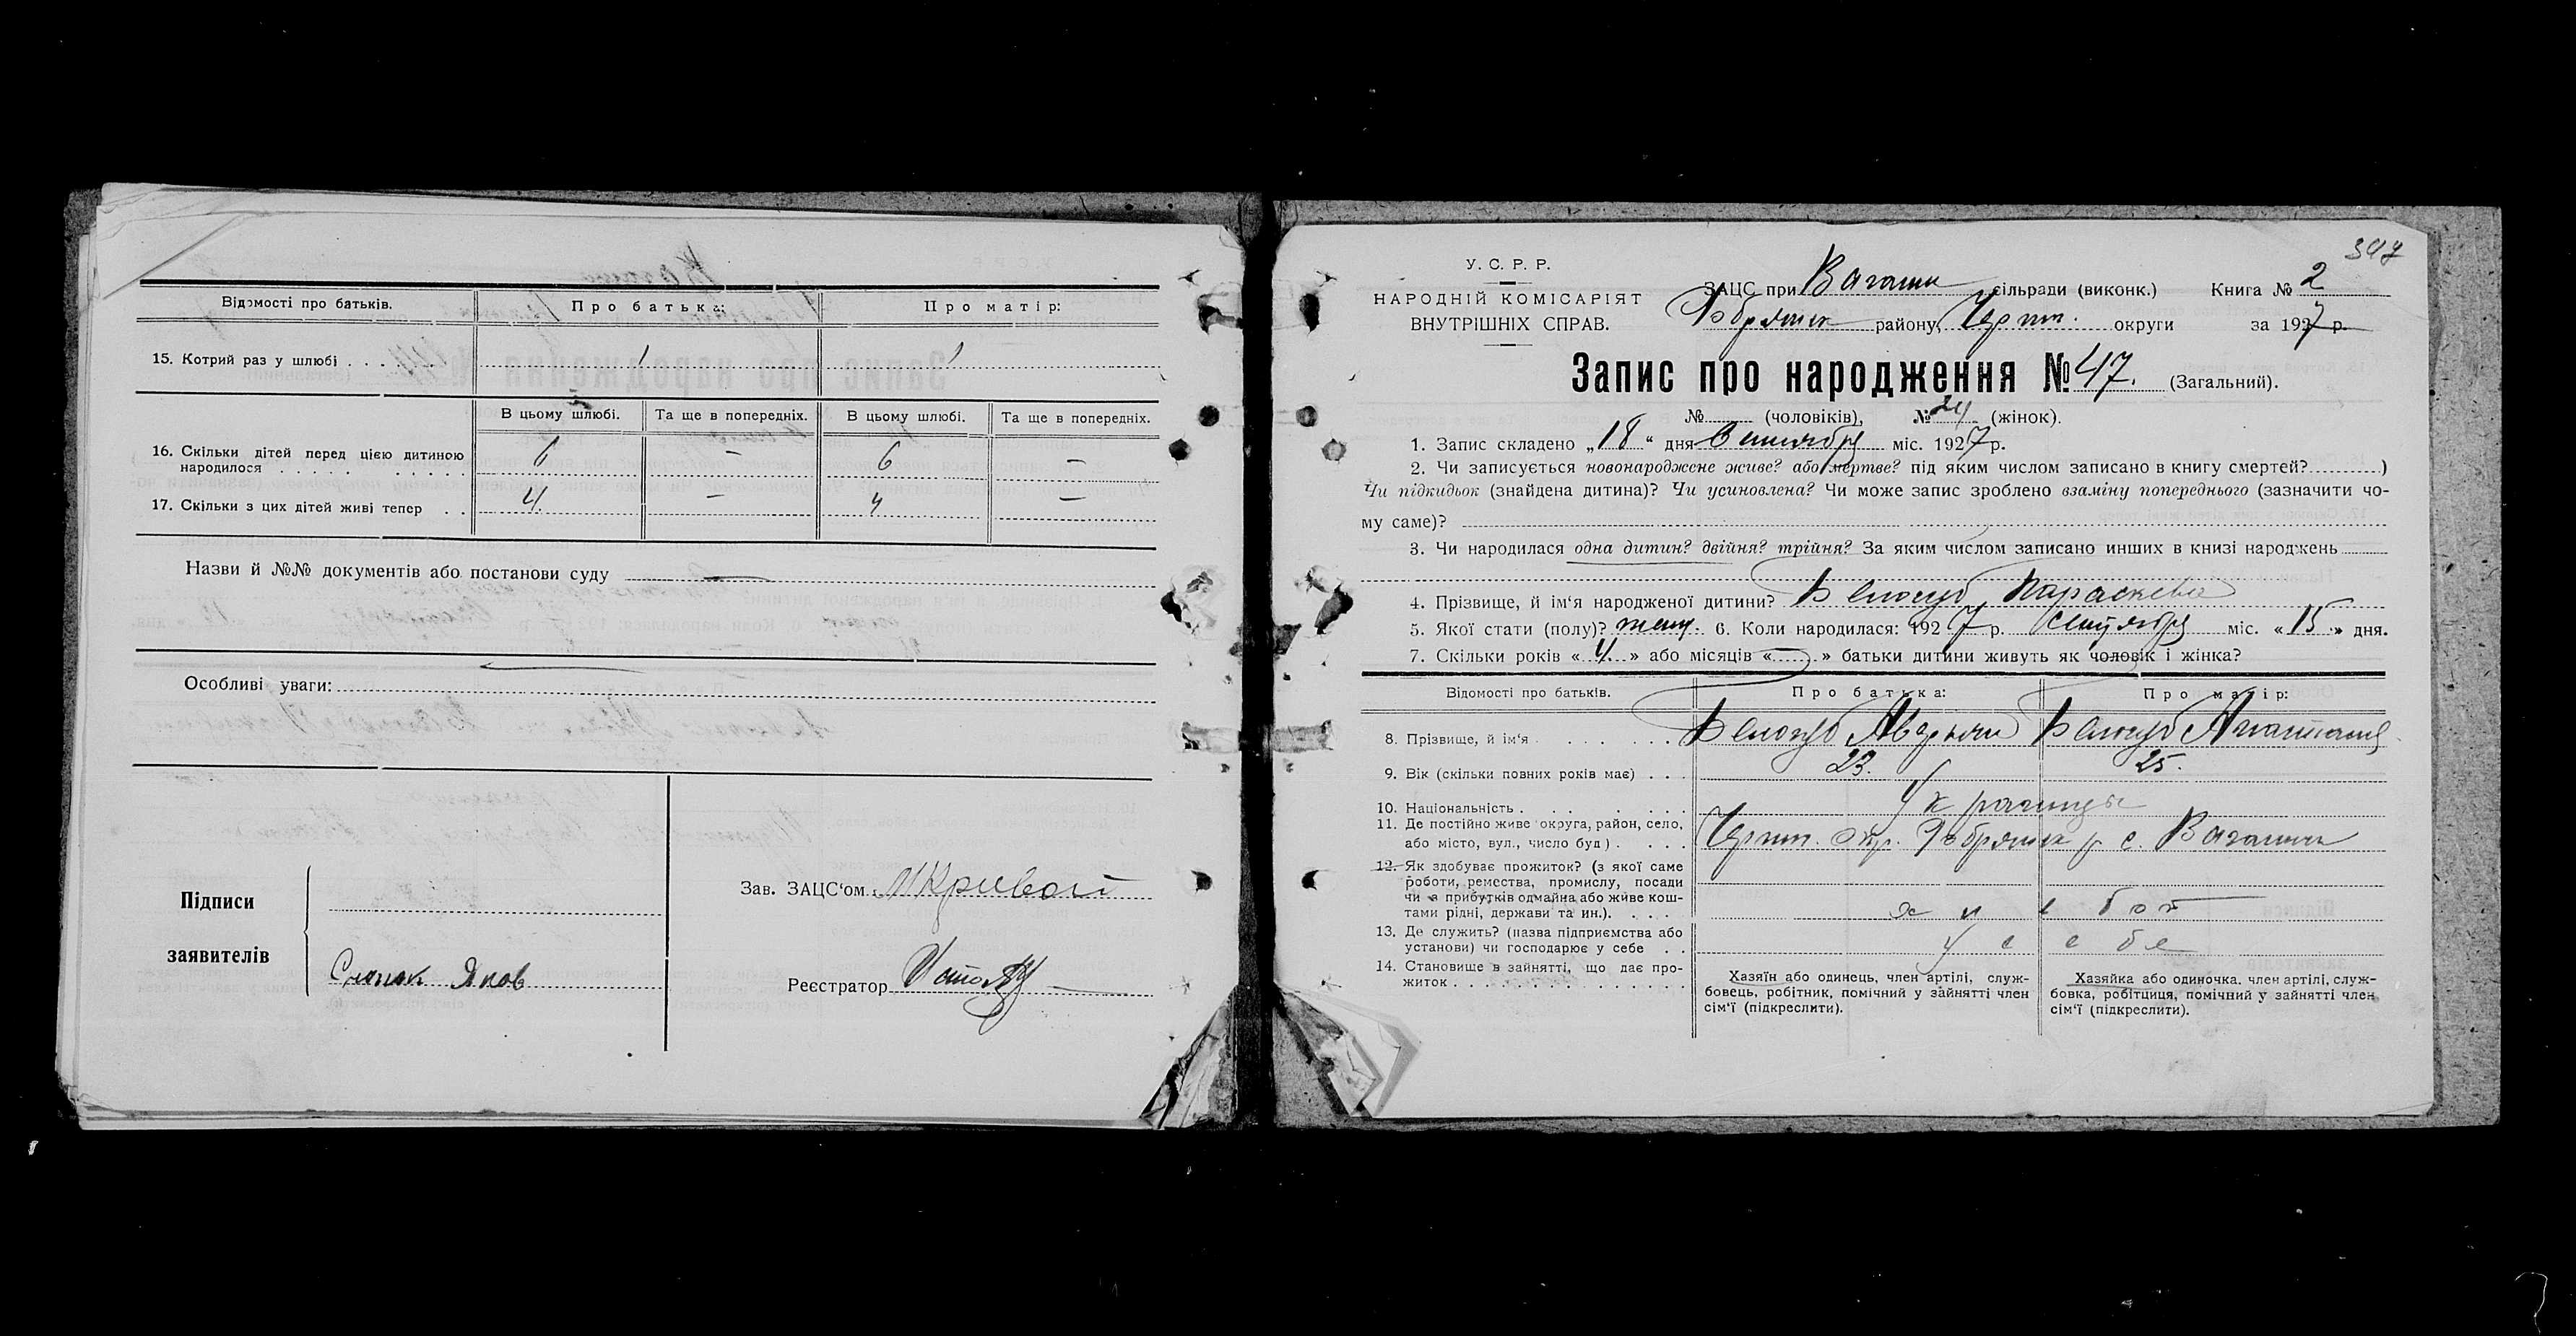 Відомості про батьків. Про батька: Про матір:
15. Котрий раз у шлюбі . . . . . 1 1
В цьому шлюбі. Та ще в попередніх. В цьому шлюбі. Та ще в попередніх.
16. Скільки дітей перед цією дитиною
народилося . . . . . . . . . . 6 — 6 —
17. Скільки з цих дітей живі тепер . . 4 — 4 —
Назви й №№ документів або постанови суду —
Особливі уваги:
Підписи
заявителів
Яков
Зав. ЗАЦС'ом Кривой
Реєстратор
347
У. С. Р. Р.
НАРОДНІЙ КОМІСАРІЯТ
ВНУТРІШНІХ СПРАВ.
ЗАЦС при Вагани сільради (виконк.) Книга № 2
району, округи за 1927 р.
Запис про народження № 47. (Загальний).
№ (чоловіків), № 24 (жінок).
1. Запис складено „18" дня Сентября міс. 1927 р.
2. Чи записується новонароджене живе? або мертве? під яким числом записано в книгу смертей? )
Чи підкидьок (знайдена дитина)? Чи усиновлена? Чи може запис зроблено взаміну попереднього (зазначити чо-
му саме)?
3. Чи народилася одна дитин? двійня? трійня? За яким числом записано инших в книзі народжень
4. Прізвище, й ім'я народженої дитини? Белоцуб Параскева
5. Якої стати (полу)? женц. 6. Коли народилася: 1927 р. сентября міс. «15» дня.
7. Скільки років «4» або місяців « » батьки дитини живуть як чоловік і жінка?
Відомості про батьків. Про батька: Про матір:
8. Прізвище, й ім'я . . . . . . . Белоцуб Аверьян Белоцуб Анастасия
9. Вік (скільки повних років має) . . . 23. 25.
10. Національність . . . . . . . Украинцы
11. Де постійно живе округа, район, село,
або місто, вул., число буд) . . . . окр. р с. Вагани
12. Як здобуває прожиток? (з якої саме
роботи, ремества, промислу, посади
чи з прибутків одмайна або живе кош-
тами рідні, держави та ин.). . . . хлебоп
13. Де служить? (назва підприємства або
установи) чи господарює у себе . . у себе
14. Становище в зайнятті, що дає про-
житок . . . . . . . . . . . . . .
Хазяїн або одинець, член артілі, служ-
бовець, робітник, помічний у зайнятті член
сім'ї (підкреслити).
Хазяйка або одиночка. член артілі, служ-
бовка, робітниця, помічний у зайнятті член
сім'ї (підкреслити).